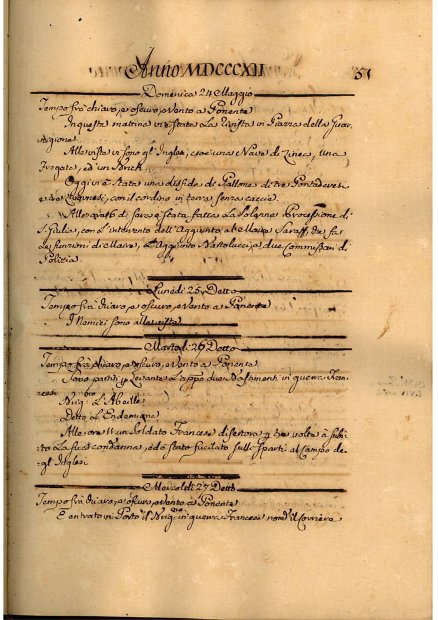 Anno MDCCCXII
51
Domenica 24 Maggio
Tempo frà chiaro, e oscuro, e Vento a Ponente
In questa mattina vi è stata La Rivista in Piazza della Guar
nigione
Alla vista vi sono gl'Inglesi, cioè una Nave di Linea, una
Fregata, ed un Brich
Oggi vi è stata una disfida di Pallone di tre Pontadevesi
e tre, con il cordino in terra senza caccie
Alle ore di sera è stata fatta La solenne Processione di
S. Giulia, con l'intervento dell'Aggiunto al Maire, che fa
Le funzioni di Maire, L'Aggiunto Bartolucci, e due Commissari di
Polizia
Lunedi 25 Detto
Tempo frà chiaro, e oscuro, e Vento a Ponente
I Nemici sono alla vista
Martedi 26 Detto
Tempo frà chiaro, e oscuro, e Vento a Ponente
Sono partiti p Levante L'appo due Bastimenti in guerra Fran
cesi
Brig. L'Abeille
Detto L'Endimione
Alle ore 11 un Soldato Francese disertore p tre volte à subi
to La sua condanna, ed è stato fucilato sulli Sparti al Campo de
gl'Inglesi
Mercoldi 27 Detto
Tempo frà chiaro, e oscuro, e Vento a Ponente
È entrato in Porto il Brig. in guerra Francese nom. il Corriere